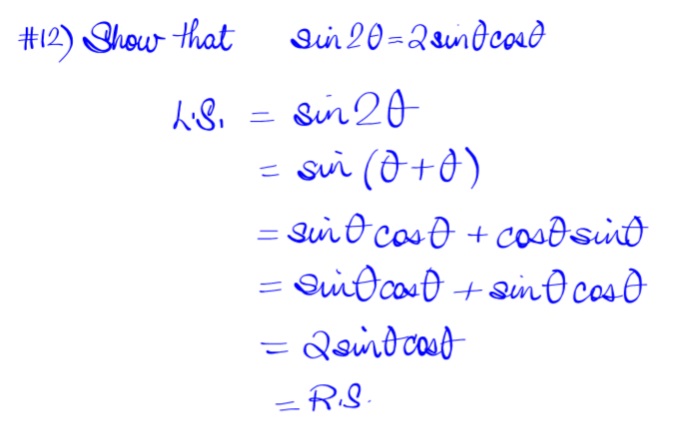 #12) Show that sin2θ=2sinθcosθ
L.S. = sin2θ
= sin(θ+θ)
= sinθcosθ + cosθsinθ
= sinθcosθ + sinθcosθ
= 2sinθcosθ
= R.S.